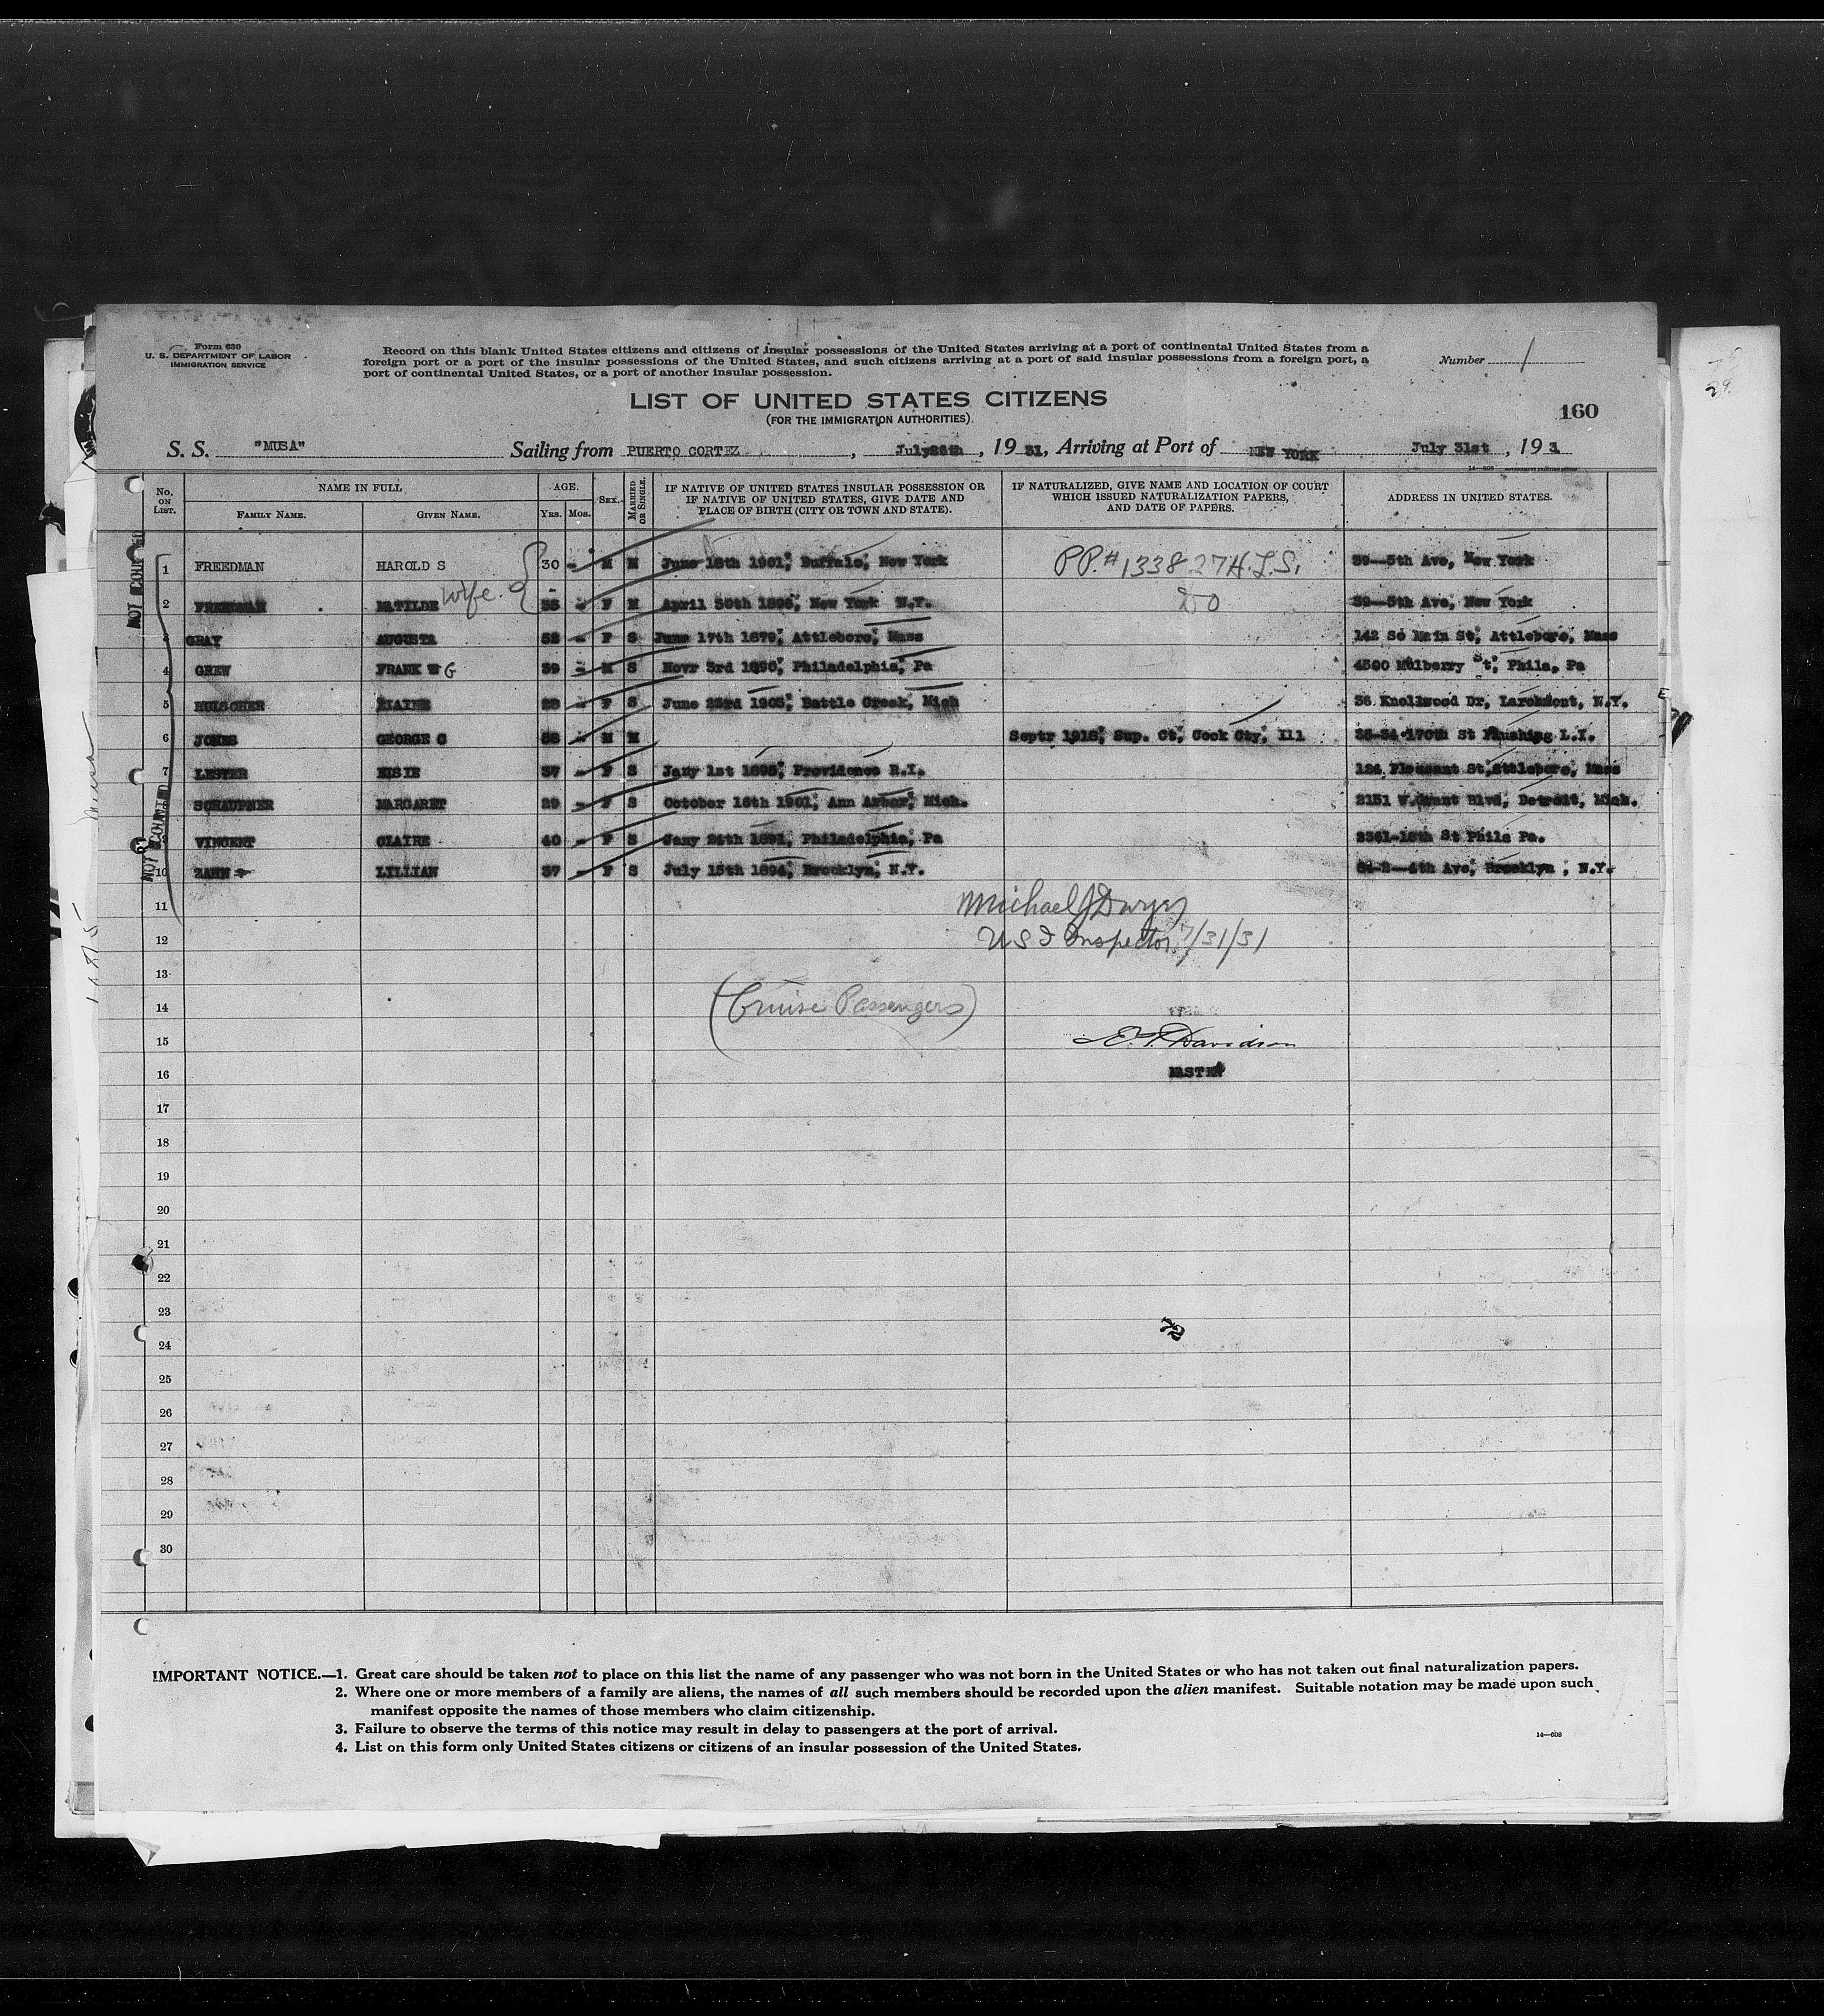 Form 630
U. S. DEPARTMENT OF LABOR
IMMIGRATION SERVICE
Record on this blank United States citizens and citizens of insular possessions of the United States arriving at a port of continental United States from a
foreign port or a port of the insular possessions of the United States, and such citizens arriving at a port of said insular possessions from a foreign port, a
port of continental United States, or a port of another insular possession.
Number 1
LIST OF UNITED STATES CITIZENS
(FOR THE IMMIGRATION AUTHORITIES)
160
S. S. "MUSA" Sailing from PUERTO CORTEZ, July 26th, 1931, Arriving at Port of NEW YORK July 31st, 193
No. ON LIST.
NAME IN FULL
FAMILY NAME. GIVEN NAME.
AGE.
YRS. MOS.
SEX.
MARRIED OR SINGLE.
IF NATIVE OF UNITED STATES INSULAR POSSESSION OR
IF NATIVE OF UNITED STATES, GIVE DATE AND
PLACE OF BIRTH (CITY OR TOWN AND STATE).
IF NATURALIZED, GIVE NAME AND LOCATION OF COURT
WHICH ISSUED NATURALIZATION PAPERS,
AND DATE OF PAPERS.
ADDRESS IN UNITED STATES.
1 FREEDMAN HAROLD S 30 - M M June 18th 1901, Buffalo, New York PP.# 133827 H.L.S. 39--5th Ave, New York
2 FREEDMAN MATILDE wife - F M April 30th New York N.Y. do 39--5th Ave, New York
3 GRAY AUGUSTA 52 - F S June 17th 1879, Attleboro, Mass 142 So Main St, Attleboro, Mass
4 GREW FRANK W G 39 - M S Novr 3rd Philadelphia, Pa 4500 Mulberry St, Phila, Pa
5 28 - F S June 23rd 1903, Battle Creek, Mich 36 Knollwood Dr, Larchmont, N.Y.
6 JONES GEORGE G - M M Septr 1918, Sup. Ct, Cook Cty, Ill 170th St Flushing L.I.
7 LESTER ELSIE 37 - F S Jany 1st Providence R.I. 124 Pleasant St, Attleboro, Mass
8 SCHAUPNER MARGARET 29 - F S October 16th 1901, Ann Arbor, Mich. 2151 W.Grant Blvd, Detroit, Mich.
9 VINCENT CLAIRE 40 - F S Jany 24th 1891, Philadelphia, Pa 2361-18th St Phila Pa.
10 ZAHN LILLIAN 37 - F S July 15th 1894, Brooklyn, N.Y. 4th Ave, Brooklyn, N.Y.
11
Michael J Dwyer
12
U S I Inspector 7/31/31
13
14
(Cruise Passengers)
15
E. T. Davidson
16
MASTER
17
18
19
20
21
22
23
72
24
25
26
27
28
29
30
IMPORTANT NOTICE.—1. Great care should be taken not to place on this list the name of any passenger who was not born in the United States or who has not taken out final naturalization papers.
2. Where one or more members of a family are aliens, the names of all such members should be recorded upon the alien manifest. Suitable notation may be made upon such
manifest opposite the names of those members who claim citizenship.
3. Failure to observe the terms of this notice may result in delay to passengers at the port of arrival.
4. List on this form only United States citizens or citizens of an insular possession of the United States.
14—608